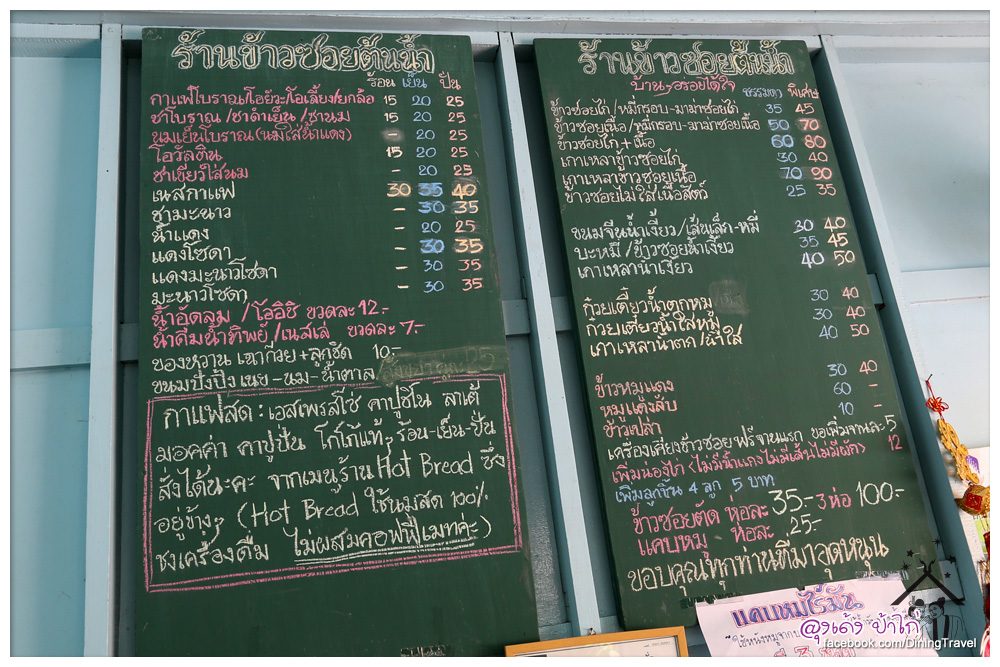 ร้านข้าวซอยต้นน้ำ
ร้อน เย็น ปั่น
กาแฟโบราณ/โอยัวะ/โอเลี้ยง/ยกล้อ 15 20 25
ชาโบราณ/ชาดำเย็น/ชานม 15 20 25
นมเย็นโบราณ(นมใส่น้ำแดง) - 20 25
โอวัลติน 15 20 25
ชาเขียวใส่นม - 20 25
เนสกาแฟ 30 35 40
ชามะนาว - 30 35
น้ำแดง - 20 25
แดงโซดา - 30 35
แดงมะนาวโซดา - 30 35
มะนาวโซดา - 30 35
น้ำอัดลม /โออิชิ ขวดละ 12.-
น้ำดื่มน้ำทิพย์/เนสเล่ ขวดละ 7.-
ของหวาน เฉาก๊วย+ลูกชิด 10.-
ขนมปังปิ้ง เนย-นม-น้ำตาล
กาแฟสด: เอสเพรสโซ่ คาปูชิโน ลาเต้
มอคค่า คาปูปั่น โกโก้แท้ๆ ร้อน-เย็น-ปั่น
สั่งได้นะคะ จากเมนูร้าน Hot Bread ซึ่ง
อยู่ข้างๆ (Hot Bread ใช้นมสด 100%
ชงเครื่องดื่ม ไม่ผสมคอฟฟี่เมทค่ะ)
ร้านข้าวซอยต้นน้ำ
บ้านๆอร่อยได้ใจ ธรรมดา พิเศษ
ข้าวซอยไก่/หมี่กรอบ-มาม่าซอยไก่ 35 45
ข้าวซอยเนื้อ/หมี่กรอบ-มาม่าซอยเนื้อ 50 70
ข้าวซอยไก่+เนื้อ 60 80
เกาเหลาข้าวซอยไก่ 30 40
เกาเหลาข้าวซอยเนื้อ 70 90
ข้าวซอยไม่ใส่เนื้อสัตว์ 25 35
ขนมจีนน้ำเงี้ยว/เส้นเล็ก-หมี่ 30 40
บะหมี่/ข้าวซอยน้ำเงี้ยว 35 45
เกาเหลาน้ำเงี้ยว 40 50
ก๋วยเตี๋ยวน้ำตกหมู 30 40
ก๋วยเตี๋ยวน้ำใสหมู 30 40
เกาเหลาน้ำตก/น้ำใส 40 50
ข้าวหมูแดง 30 40
หมูแดงสับ 60 -
ข้าวเปล่า 10 -
เครื่องเคียงข้าวซอยฟรีจานแรก ขอเพิ่มจานละ 5
เพิ่มน่องไก่ (ไม่มีน้ำแกงไม่มีเส้นไม่มีผัก) 12
เพิ่มลูกชิ้น 4 ลูก 5 บาท
ข้าวซอยตัด ห่อละ 35.- 3 ห่อ 100.-
แคบหมู ห่อละ 25.-
ขอบคุณทุกท่านที่มาอุดหนุน
แคบหมูไร้มัน
ลุงเด้ง ป้าไก่
facebook.com/DiningTravel